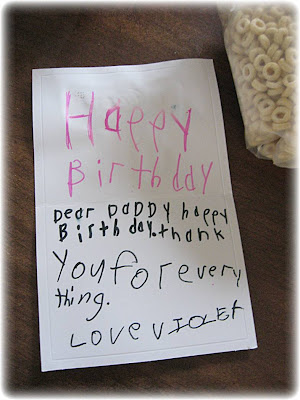 Happy
Birthday
Dear DaDDY happy
Birthday. thank
You for every
thing.
LOVE VIOLET